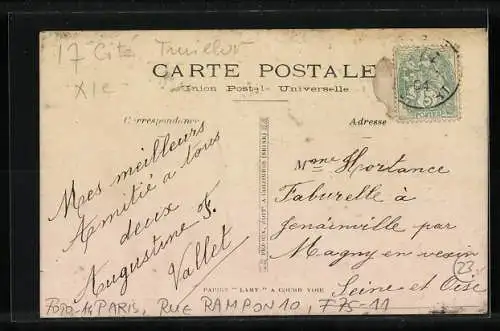 17 Cité Truillot
XIe
CARTE POSTALE
Union Postale Universelle
Correspondance
Adresse
Mes meilleurs
Amitié a tous
deux
Augustine F.
Vallet
Mme Hortance
Taburelle à
Genainville par
Magny en vexin
Seine et Oise
(23)
PAPIER "LAMY" A COURBEVOIE
FOTO-14 PARIS, RUE RAMPON 10, F75-11